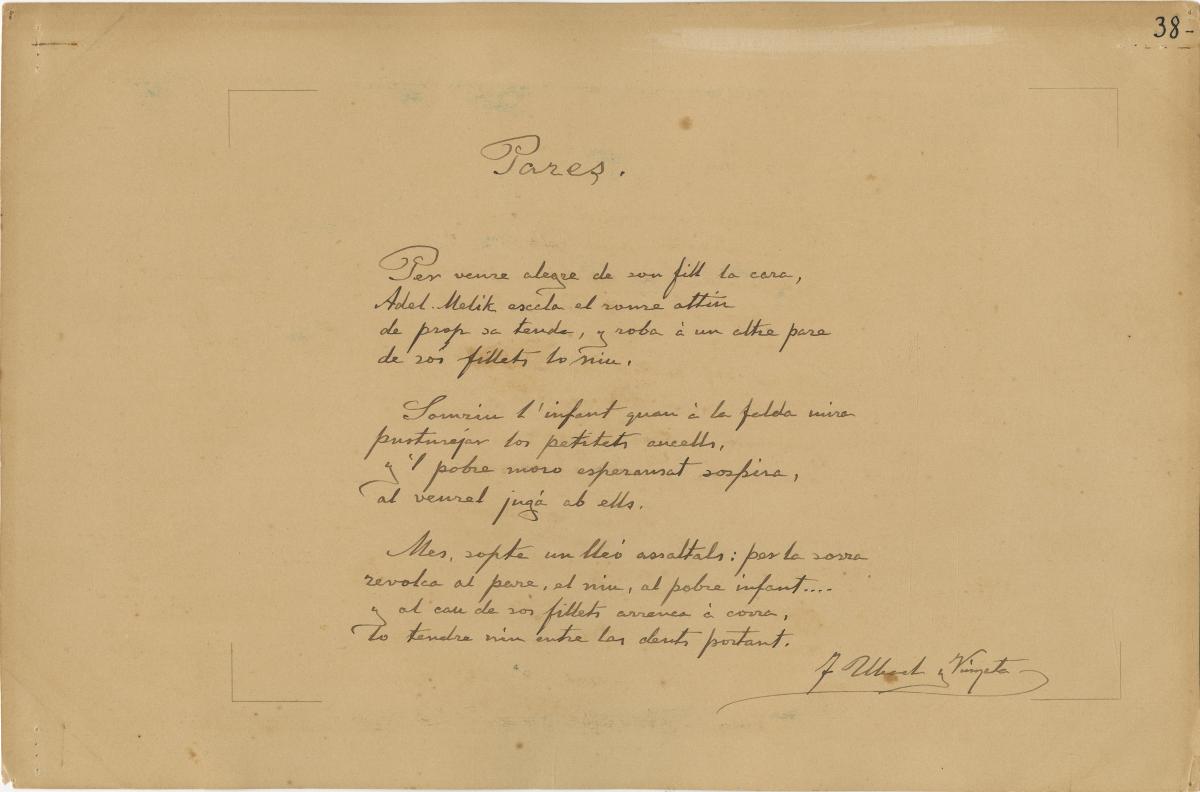 38-
Pares.
Per veure alegre de son fill la cara,
Adel-Melik escala el roure altíu
de prop sa tenda, y roba á un altre pare
de sos fillets lo niu.
Somriu l'infant quan á la falda mira
pasturejar los petitets aucells,
y 'l pobre moro esperansat sospira,
al veurel jugá ab ells.
Mes, sopte un lleó assaltals: per la sorra
revolca al pare, el niu, al pobre infant....
y al cau de sos fillets arrenca á corra,
lo tendre niu entre las dents portant.
F Ubach y Vinyeta